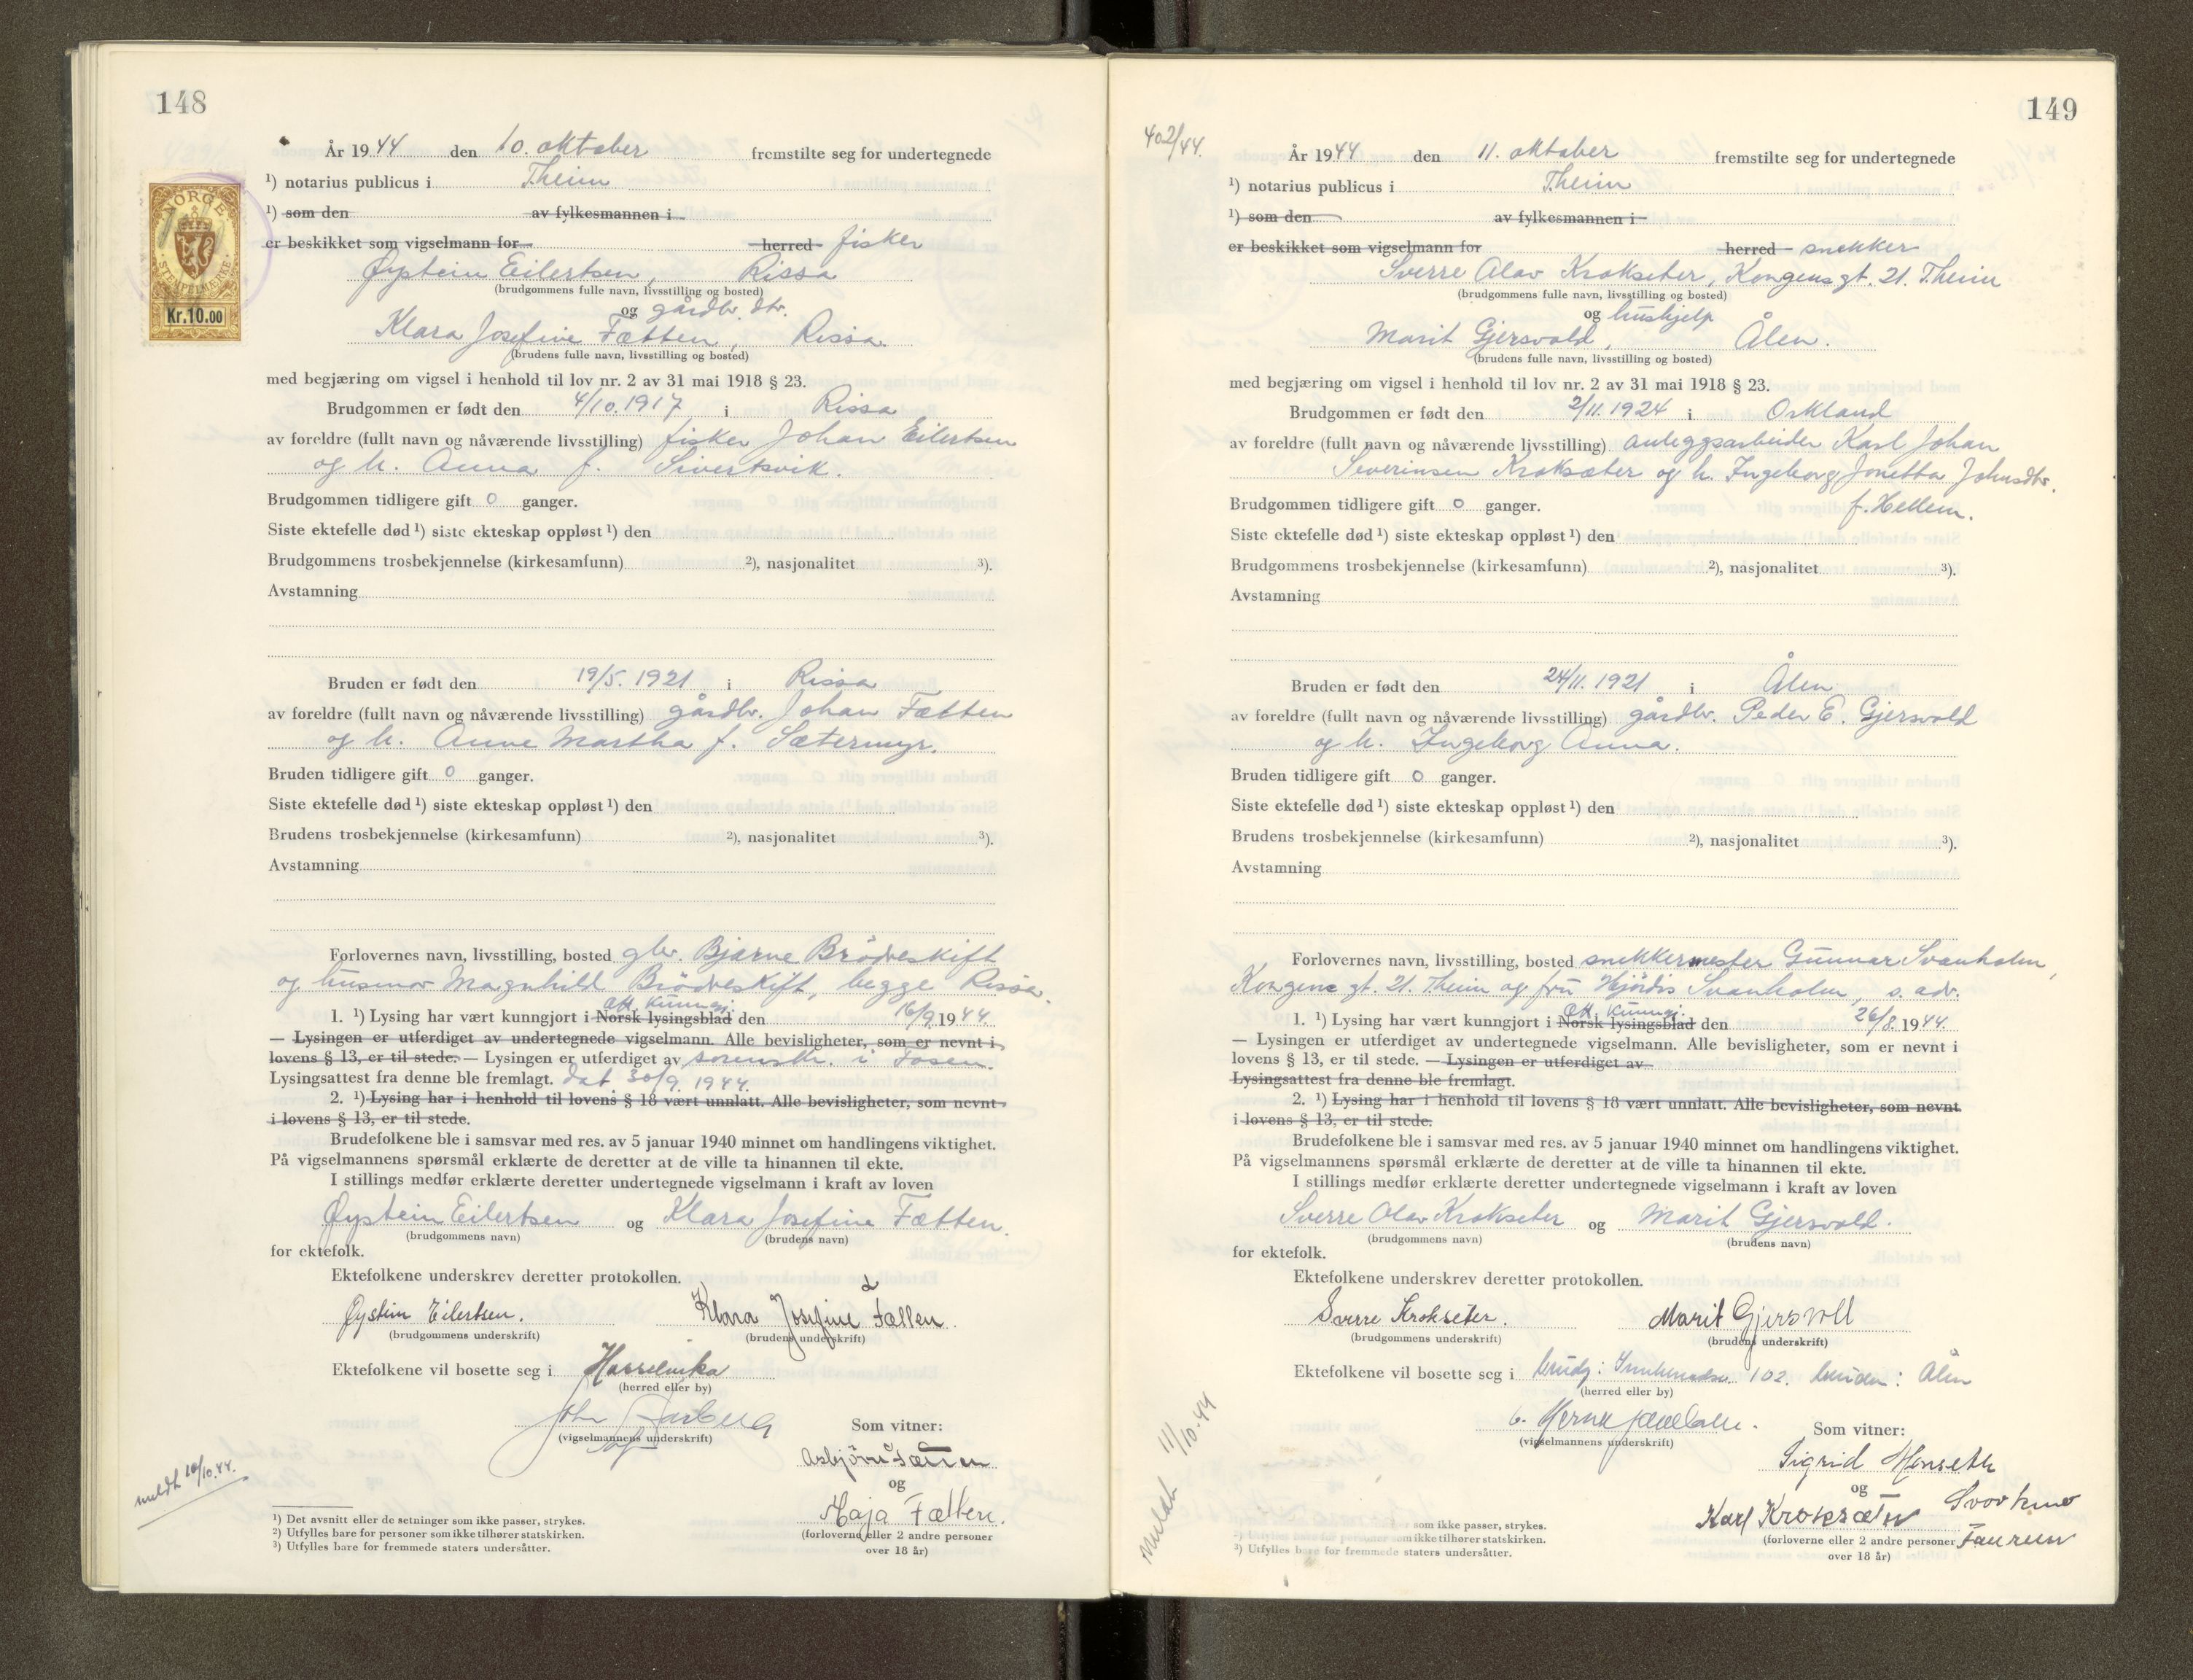 148
År 1944 den 10. oktober fremstilte seg for undertegnede
¹) notarius publicus i Theim
¹) som den av fylkesmannen i
er beskikket som vigselmann for herred fisker
Øystein Eilertsen, Rissa
(brudgommens fulle navn, livsstilling og bosted)
og gårdbr. dtr.
Klara Josefine Fætten, Rissa
(brudens fulle navn, livsstilling og bosted)
med begjæring om vigsel i henhold til lov nr. 2 av 31 mai 1918 § 23.
Brudgommen er født den 4/10. 1917 i Rissa
av foreldre (fullt navn og nåværende livsstilling) fisker Johan Eilertsen
og h. Anna f. Sivertsvik.
Brudgommen tidligere gift 0 ganger.
Siste ektefelle død ¹) siste ekteskap oppløst ¹) den
Brudgommens trosbekjennelse (kirkesamfunn) ²), nasjonalitet ³).
Avstamning
Bruden er født den 19/5. 1921 i Rissa
av foreldre (fullt navn og nåværende livsstilling) gårdbr. Johan Fætten
og h. Anne Martha f. Sætermyr.
Bruden tidligere gift 0 ganger.
Siste ektefelle død ¹) siste ekteskap oppløst ¹) den
Brudens trosbekjennelse (kirkesamfunn) ²), nasjonalitet ³).
Avstamning
Forlovernes navn, livsstilling, bosted gbr. Bjarne Brödreskift
og husmor Magnhild Brödreskift, begge Rissa.
off. kunngj.
1. ¹) Lysing har vært kunngjort i Norsk lysingsblad den 16/9 1944.
— Lysingen er utferdiget av undertegnede vigselmann. Alle bevisligheter, som er nevnt i
lovens § 13, er til stede. — Lysingen er utferdiget av sorenskr. i Fosen.
Lysingsattest fra denne ble fremlagt. dat. 30/9. 1944.
2. ¹) Lysing har i henhold til lovens § 18 vært unnlatt. Alle bevisligheter, som nevnt
i lovens § 13, er til stede.
Brudefolkene ble i samsvar med res. av 5 januar 1940 minnet om handlingens viktighet.
På vigselmannens spørsmål erklærte de deretter at de ville ta hinannen til ekte.
I stillings medfør erklærte deretter undertegnede vigselmann i kraft av loven
Øystein Eilertsen og Klara Josefine Fætten.
(brudgommens navn) (brudens navn)
for ektefolk.
Ektefolkene underskrev deretter protokollen.
Øystein Eilertsen. Klara Josefine Fætten.
(brudgommens underskrift) (brudens underskrift)
Ektefolkene vil bosette seg i Hasselvika
(herred eller by)
John Aasberg
(vigselmannens underskrift)
Som vitner:
Asbjörn Fætten
og
Maja Fætten.
(forloverne eller 2 andre personer
over 18 år)
meldt 10/10.44.
¹) Det avsnitt eller de setninger som ikke passer, strykes.
²) Utfylles bare for personer som ikke tilhører statskirken.
³) Utfylles bare for fremmede staters undersåtter.
NORGE
STEMPELMERKE
Kr.10.00
149
402/44.
År 1944 den 11. oktober fremstilte seg for undertegnede
¹) notarius publicus i Theim
¹) som den av fylkesmannen i
er beskikket som vigselmann for herred snekker
Sverre Olav Krokseter, Kongens gt. 21. Theim
(brudgommens fulle navn, livsstilling og bosted)
og hushjelp
Marit Gjersvold, Ålen.
(brudens fulle navn, livsstilling og bosted)
med begjæring om vigsel i henhold til lov nr. 2 av 31 mai 1918 § 23.
Brudgommen er født den 2/11. 1924 i Orkland
av foreldre (fullt navn og nåværende livsstilling) anleggsarbeider Karl Johan
Severinsen Kroksæter og h. Ingeborg Jonetta Johnsdtr.
f. Hellem.
Brudgommen tidligere gift 0 ganger.
Siste ektefelle død ¹) siste ekteskap oppløst ¹) den
Brudgommens trosbekjennelse (kirkesamfunn) ²), nasjonalitet ³).
Avstamning
Bruden er født den 24/11. 1921 i Ålen
av foreldre (fullt navn og nåværende livsstilling) gårdbr. Peder E. Gjersvold
og h. Ingeborg Anna.
Bruden tidligere gift 0 ganger.
Siste ektefelle død ¹) siste ekteskap oppløst ¹) den
Brudens trosbekjennelse (kirkesamfunn) ²), nasjonalitet ³).
Avstamning
Forlovernes navn, livsstilling, bosted snekkermester Gunnar Svanholm,
Kongens gt. 21. Theim og fru Hjördis Svanholm, s. adr.
off. kunngj.
1. ¹) Lysing har vært kunngjort i Norsk lysingsblad den 26/8. 1944.
— Lysingen er utferdiget av undertegnede vigselmann. Alle bevisligheter, som er nevnt i
lovens § 13, er til stede. — Lysingen er utferdiget av
Lysingsattest fra denne ble fremlagt.
2. ¹) Lysing har i henhold til lovens § 18 vært unnlatt. Alle bevisligheter, som nevnt
i lovens § 13, er til stede.
Brudefolkene ble i samsvar med res. av 5 januar 1940 minnet om handlingens viktighet.
På vigselmannens spørsmål erklærte de deretter at de ville ta hinannen til ekte.
I stillings medfør erklærte deretter undertegnede vigselmann i kraft av loven
Sverre Olav Krokseter og Marit Gjersvold.
(brudgommens navn) (brudens navn)
for ektefolk.
Ektefolkene underskrev deretter protokollen.
Sverre Krokseter. Marit Gjersvoll
(brudgommens underskrift) (brudens underskrift)
Ektefolkene vil bosette seg i brudg: 102. bruden: Ålen
(herred eller by)
(vigselmannens underskrift)
Som vitner:
Sigrid Monseth
og
Karl Kroksæter
(forloverne eller 2 andre personer
over 18 år)
meldt 11/10.44
som ikke passer, strykes.
²) Utfylles bare for personer som ikke tilhører statskirken.
³) Utfylles bare for fremmede staters undersåtter.